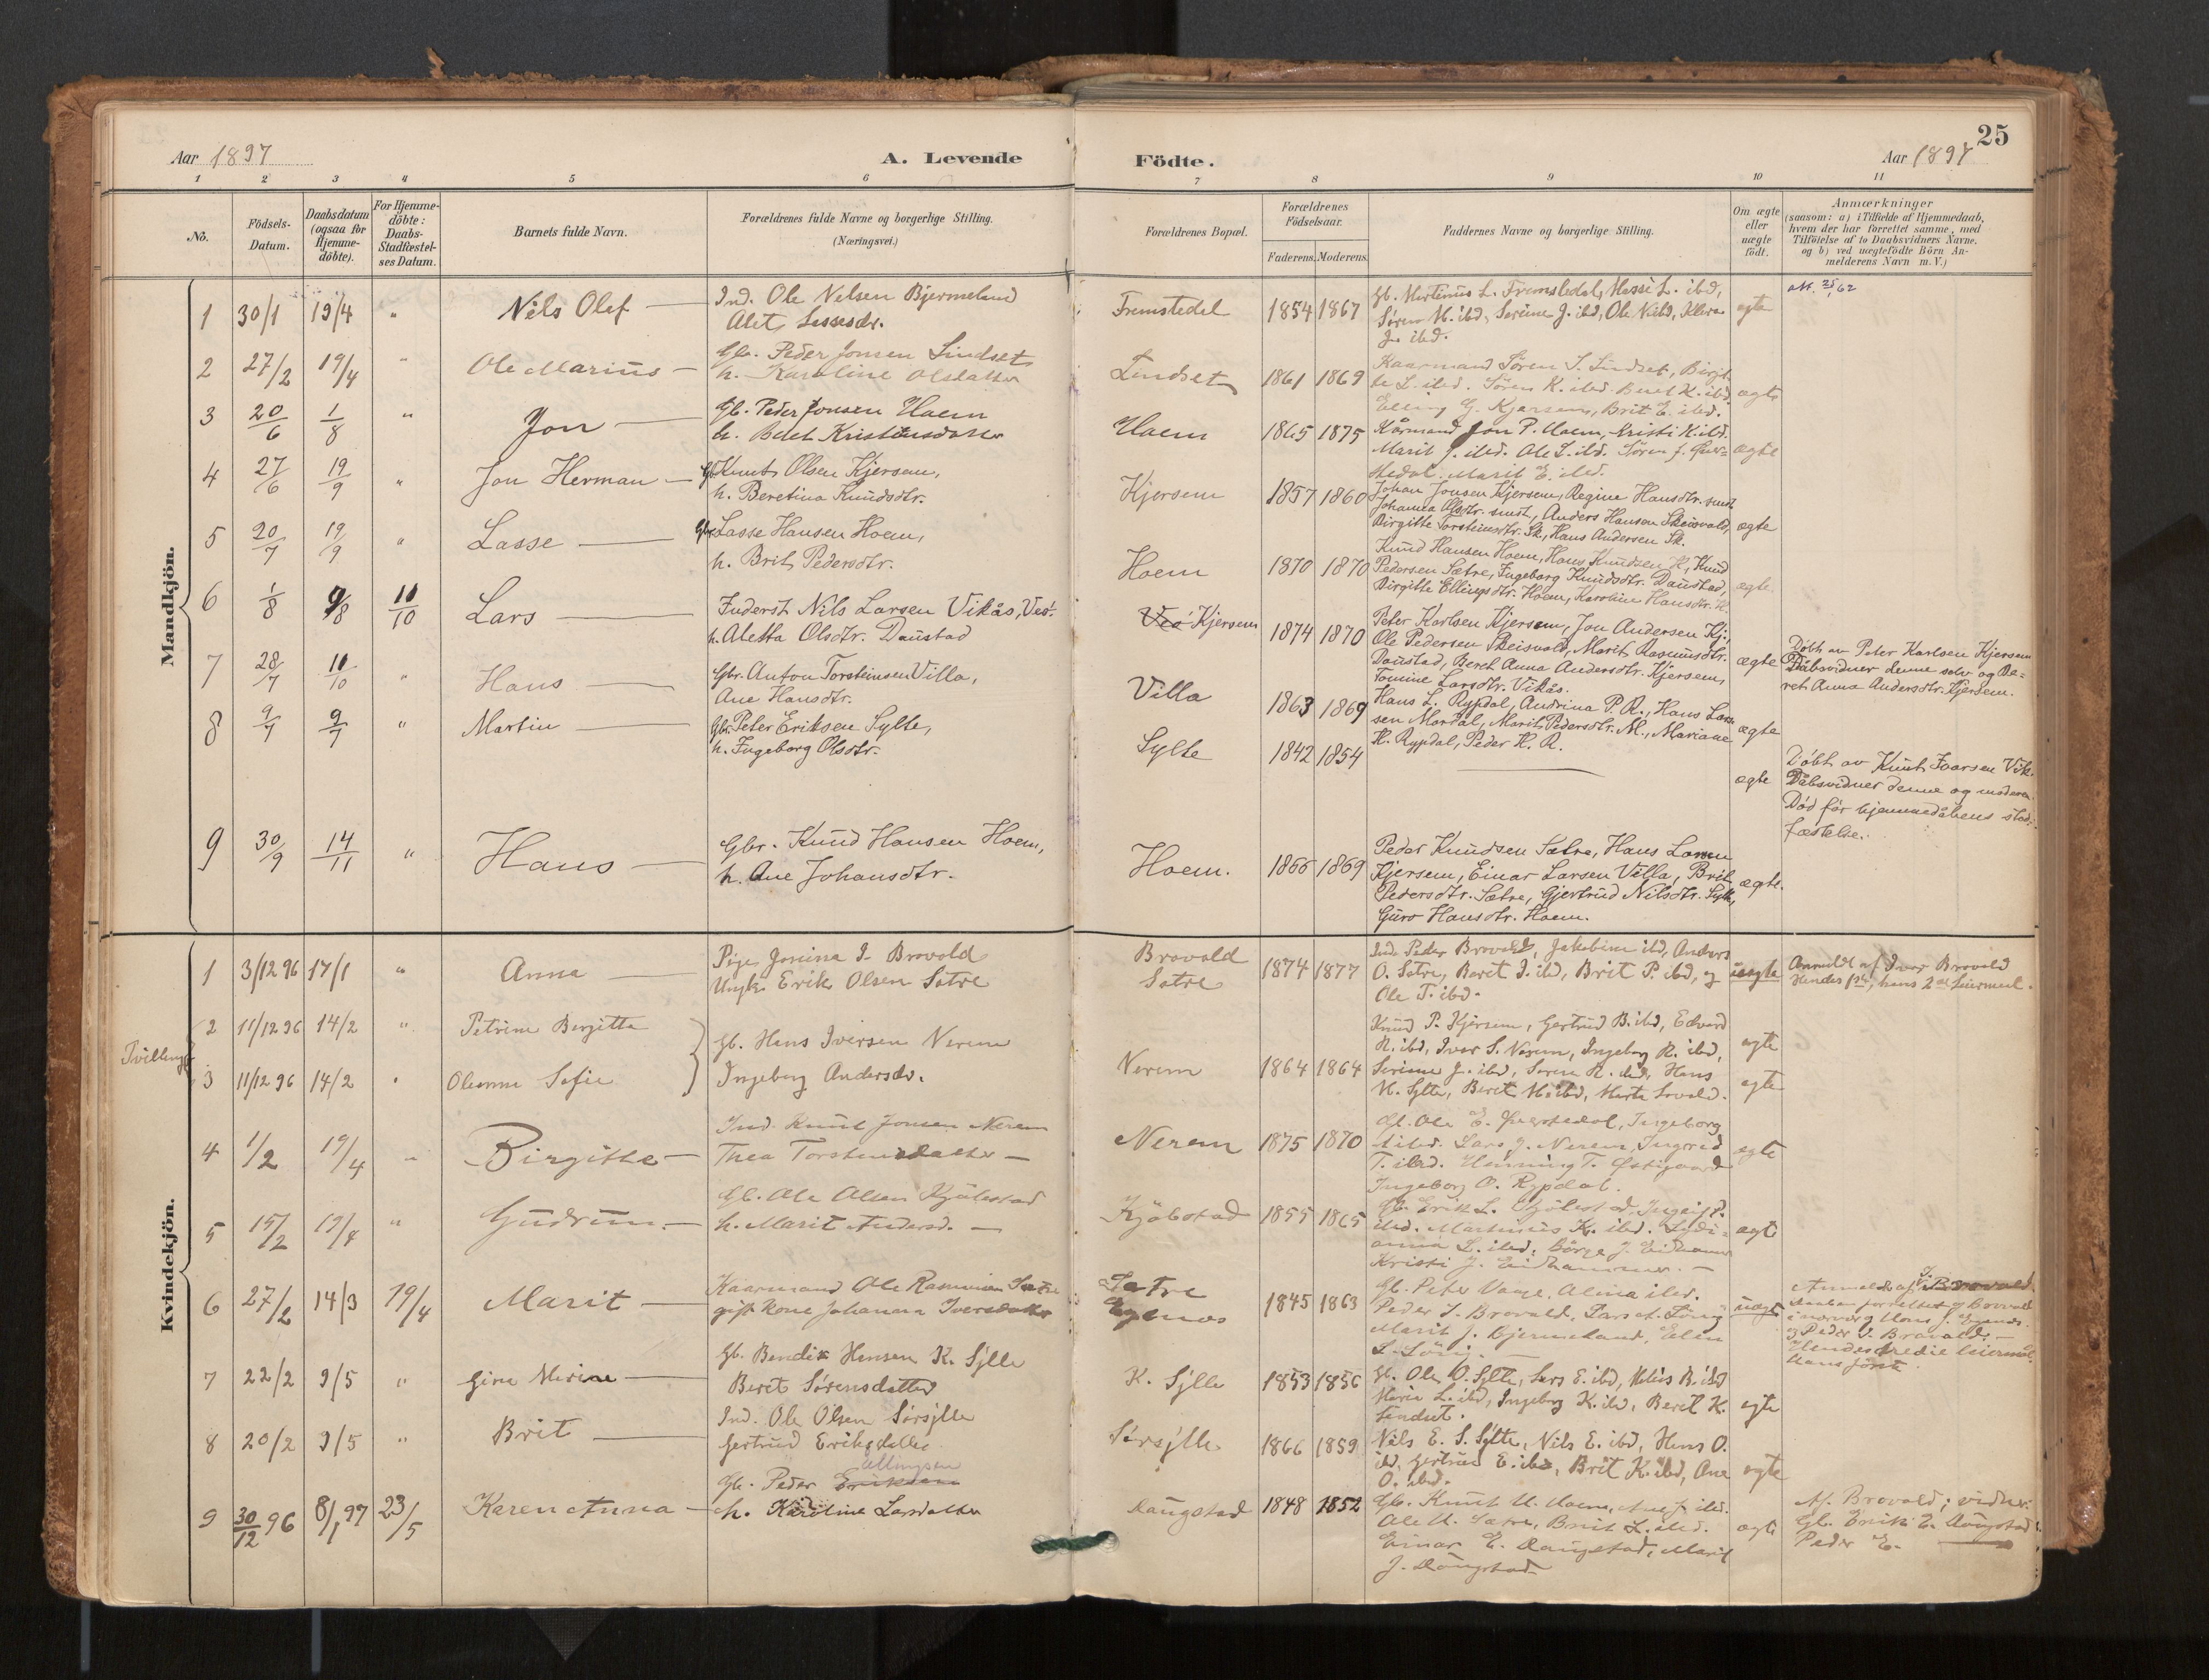 25
Aar 1897
A. Levende
Födte.
Aar 1897
1 2 3 4 5 6 7 8 9 10 11
No.
Födsels-
Datum.
Daabsdatum
(ogsaa for
Hjemme-
döbte).
For Hjemme-
döbte:
Daabs-
Stadfæstel-
ses Datum.
Barnets fulde Navn.
Forældrenes fulde Navne og borgerlige Stilling.
(Næringsvei.)
Forældrenes Bopæl.
Forældrenes
Födselsaar.
Faderens. Moderens.
Faddernes Navne og borgerlige Stilling.
Om ægte
eller
uægte
födt.
Anmærkninger
(saasom: a) i Tilfælde af Hjemmedaab,
hvem der har forrettet samme, med
Tilföielse af to Daabsvidners Navne,
og b) ved uægtefödte Börn An-
melderens Navn m.V.)
Mandkjön.
1 30/1 19/4 " Nils Olaf
Ind. Ole Nelsen Bjermeland
Alet Lassesdr.
Fremstedal 1854 1867
Gb. Martinus L. Fremstedal, Lasse L. ibd,
Søren M. ibd, Serine J. ibd, Ole N. ibd,
J. ibd.
ægte
att. 62
2 27/2 19/4 " Ole Marius
Gb. Peder Jonsen Lindset
h. Karoline Olsdatter
Lindset 1861 1869
Kaarmand Søren S. Lindset, Birgit-
te L. ibd. Søren K. ibd. Beret K. ibd.
Elling G. Kjersem, Brit E. ibd.
ægte
3 20/6 1/8 " Jon
Gb. Peder Jonsen Hoem
h. Beret Kristensdatter
Hoem 1865 1875
Kårmand Jon P. Hoem, Kristi K. ibd.
Marit J. ibd. Ole L. ibd. Søren J.
stedal. Marit E. ibd.
ægte
4 27/6 19/9 " Jon Herman
Gb. Knut Olsen Kjersem,
h. Beretina Knudsdtr.
Kjersem 1857 1860
Johan Jonsen Kjersem, Regine Hansdtr. smst
Johanna Olsdtr. smst., Anders Hansen Skeisvold,
Birgitte Torsteinsdtr. Sk., Hans Andersen Sk.
ægte
5 20/7 19/9 " Lasse
Gbr. Lasse Hansen Hoem,
h. Brit Pedersdtr.
Hoem 1870 1870
Knud Hansen Hoem, Hans Knudsen H., Knud
Pedersen Sætre, Ingeborg Knudsdtr. Daustad,
Birgitte Ellingsdtr. Hoem, Karoline Hansdtr. H.
ægte.
6 1/8 9/8 10/10 Lars
Inderst Nils Larsen Vikås, Ves-.
h. Aletta Olsdtr. Daustad
Kjersem 1874 1870
Peter Karlsen Kjersem, Jon Andersen Kj.,
Ole Pedersen Skeisvold, Marit Rasmusdtr.
Daustad, Beret Anna Andersdtr. Kjersem,
Tomine Larsdtr. Vikås.
ægte
Døbt av Peter Karlsen Kjersem
Dåbsvidner denne selv og Be-
ret Anna Andersdtr. Kjersem.
7 28/7 10/10 " Hans
Gbr. Anton Torsteinsen Villa,
Ane Hansdtr.
Villa 1863 1869
Hans L. Rypdal, Andrina P. R., Hans Lar-
sen Mardal, Marit Pedersdtr. M., Mariane
H. Rypdal, Peder H. R.
ægte
8 9/7 9/7 " Martin
Gbr. Peter Eriksen Sylte,
h. Ingeborg Olsdtr.
Sylte 1842 1854
ægte
Døbt av Knut Ivarsen Vik.
Dåbsvidner denne og moderen
Død før hjemmedåbens stad-
fæstelse.
9 30/9 14/11 " Hans
Gbr. Knud Hansen Hoem,
h. Ane Johansdtr.
Hoem. 1866 1869
Peder Knudsen Sætre, Hans Larsen
Kjersem, Einar Larsen Villa, Brit
Pedersdtr. Sætre, Gjertrud Nilsdtr. Sylte,
Guro Hansdtr. Hoem.
ægte.
Kvindekjön.
1 3/12 96 17/1 " Anna
Pige Jonina I. Brovold
Ungk. Erik Olsen Sætre
Brovold
Sætre
1874 1877
Ind. Peder Brovold, Jakobine ibd, Anders
O. Sætre, Beret I. ibd, Brit P. ibd, og
Ole T. ibd.
uægte
Anmeldt af Iver Brovold
Hendes 1ste, hans 2det leiermaal.
Tvillinger
2 11/12 96 14/2 " Petrine Bergitte
3 11/12 96 14/2 " Oleanna Sofie
Gb. Hans Iversen Nerem
Ingeborg Andersdr.
Nerem 1864 1864
Knud P. Kjersem, Gertrud B. ibd, Edvard
R. ibd, Iver S. Nerem, Ingeborg R. ibd,
Serine J. ibd, Søren R. ibd, Hans
M. Sylte, Beret M. ibd, Marta
ægte
ægte
4 1/2 19/4 " Birgitte
Ind. Knut Jonsen Nerem
Thea Torsteinsdatter
Nerem 1875 1870
Gb. Ole E. Ingeborg
ibd. Lars J. Nerem, Ingrid
T. ibd. Henning T. Østigaard
Ingeborg O. Rypdal.
ægte
5 15/2 19/4 " Gudrun.
Gb. Ole Olsen Kjølestad
h. Marit Andersd.
Kjølstad 1855 1865
Gb. Erik L. Kjølestad,
ibd. Martinus K. ibd.
anna L. ibd. Børge J. Eidhammer
Kristi J. Eidhammer.
ægte
6 27/2 14/3 19/4 Marit
Kaarmand Ole Rasmusen Sætre
gift Kone Johanna Iversdatter
Sætre
Egenes
1845 1863
Gb. Peter Vaage, Alina ibd.
Peder I. Brovold, Lars
Marit J. Bjermeland, Ellen
uægte
Anmeldt af I. Brovold
Daaben forrettet af Brovold
i nærvær af Mons J. Egenes
og Peder I. Brovold.
Hendes tredie leiermål
hans først
7 22/2 9/5 " Gina Marine
Gb. Bendik Hansen K. Sylte
Beret Sørensdatter
K. Sylte 1853 1856
Gb. Ole O. Sylte, Lars E. ibd, Nils B. ibd
Marie L. ibd, Ingeborg K. ibd, Beret K.
Lindset.
ægte
8 20/2 9/5 " Brit
Ind. Ole Olsen Sørsylte
Gertrud Eriksdatter
Sørsylte 1866 1859
Nils E. S. Sylte, Nils E. ibd, Hans O.
ibd, Gertrud E. ibd, Brit K. ibd, Ane
O. ibd.
ægte
9 30/12 96 8/1 97 23/5 Karen Anna
Ellingsen
Gb. Peder Eriksen
h. Karoline Larsdatter
Daugstad 1848 1852
Gb. Knut H. Hoem, Ane J. ibd.
Ole H. Sætre, Brit L. ibd.
Einar E. Daugstad, Marit
J. Daugstad
ægte
Af Brovold; vidner:
Gb. Erik E. Daugstad
Peder E.